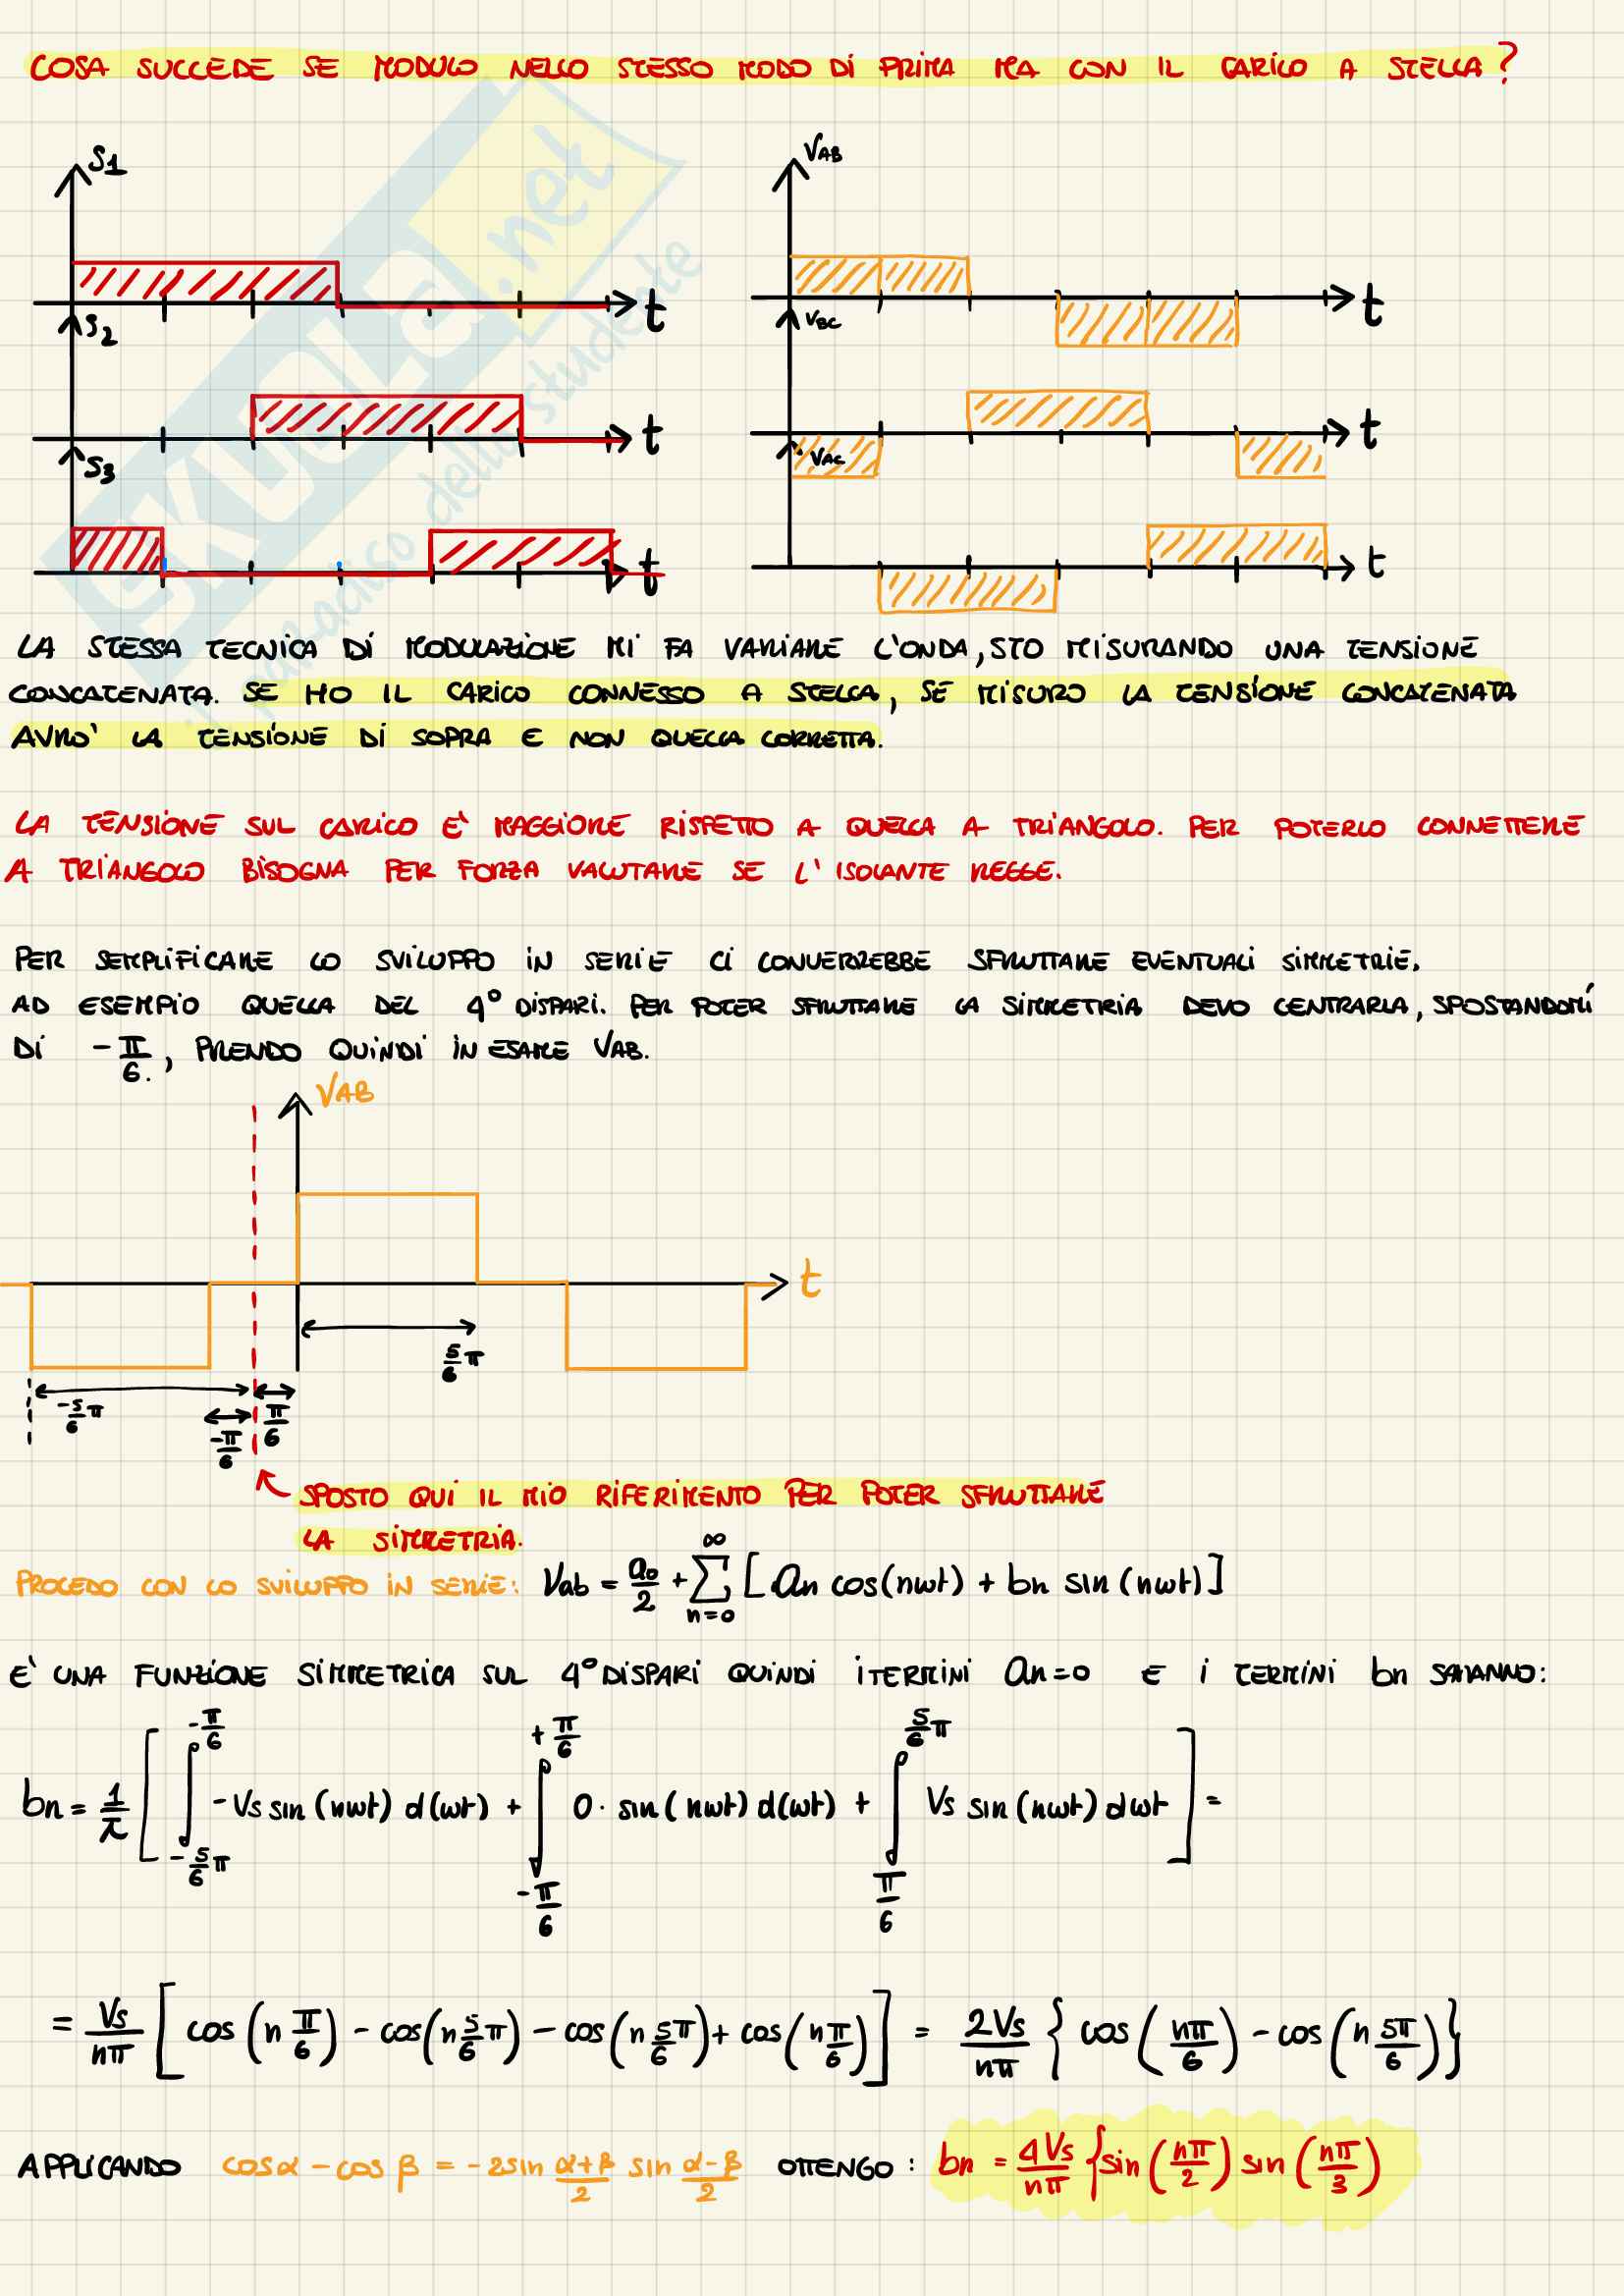 COSA SUCCEDE SE MODULO NELLO STESSO MODO DI PRIMA MA CON IL CARICO A STELLA?
S1
t
S2
t
S3
t
VAB
t
VBC
t
VAC
t
SKUOLA.net
il paradiso dello studente
LA STESSA TECNICA DI MODULAZIONE MI FA VARIARE L'ONDA, STO MISURANDO UNA TENSIONE
CONCATENATA. SE HO IL CARICO CONNESSO A STELLA, SE MISURO LA TENSIONE CONCATENATA
AVRO' LA TENSIONE DI SOPRA E NON QUELLA CORRETTA.
LA TENSIONE SUL CARICO E' MAGGIORE RISPETTO A QUELLA A TRIANGOLO. PER POTERLO CONNETTERE
A TRIANGOLO BISOGNA PER FORZA VALUTARE SE L'ISOLANTE REGGE.
PER SEMPLIFICARE LO SVILUPPO IN SERIE CI CONVERREBBE SFRUTTARE EVENTUALI SIMMETRIE.
AD ESEMPIO QUELLA DEL 4° DISPARI. PER POTER SFRUTTARE LA SIMMETRIA DEVO CENTRARLA, SPOSTANDOMI
DI -π/6, PRENDO QUINDI IN ESAME VAB.
VAB
t
5/6 π
-5/6 π
-π/6
π/6
SPOSTO QUI IL MIO RIFERIMENTO PER POTER SFRUTTARE
LA SIMMETRIA.
PROCEDO CON LO SVILUPPO IN SERIE: Vab = a0/2 + ∑_{n=0}^{∞} [an cos(nωt) + bn sin(nωt)]
E' UNA FUNZIONE SIMMETRICA SUL 4° DISPARI QUINDI I TERMINI an=0 E I TERMINI bn SARANNO:
bn = 1/π [ ∫_{-5/6 π}^{-π/6} -Vs sin(nωt) d(ωt) + ∫_{-π/6}^{+π/6} 0· sin(nωt) d(ωt) + ∫_{π/6}^{5/6 π} Vs sin(nωt) dωt ] =
= Vs/nπ [ cos(n π/6) - cos(n 5/6 π) - cos(n 5π/6) + cos(n π/6) ] = 2Vs/nπ { cos(nπ/6) - cos(n 5π/6) }
APPLICANDO cosα - cosβ = -2sin (α+β)/2 sin (α-β)/2 OTTENGO: bn = 4Vs/nπ { sin(nπ/2) sin(nπ/3)